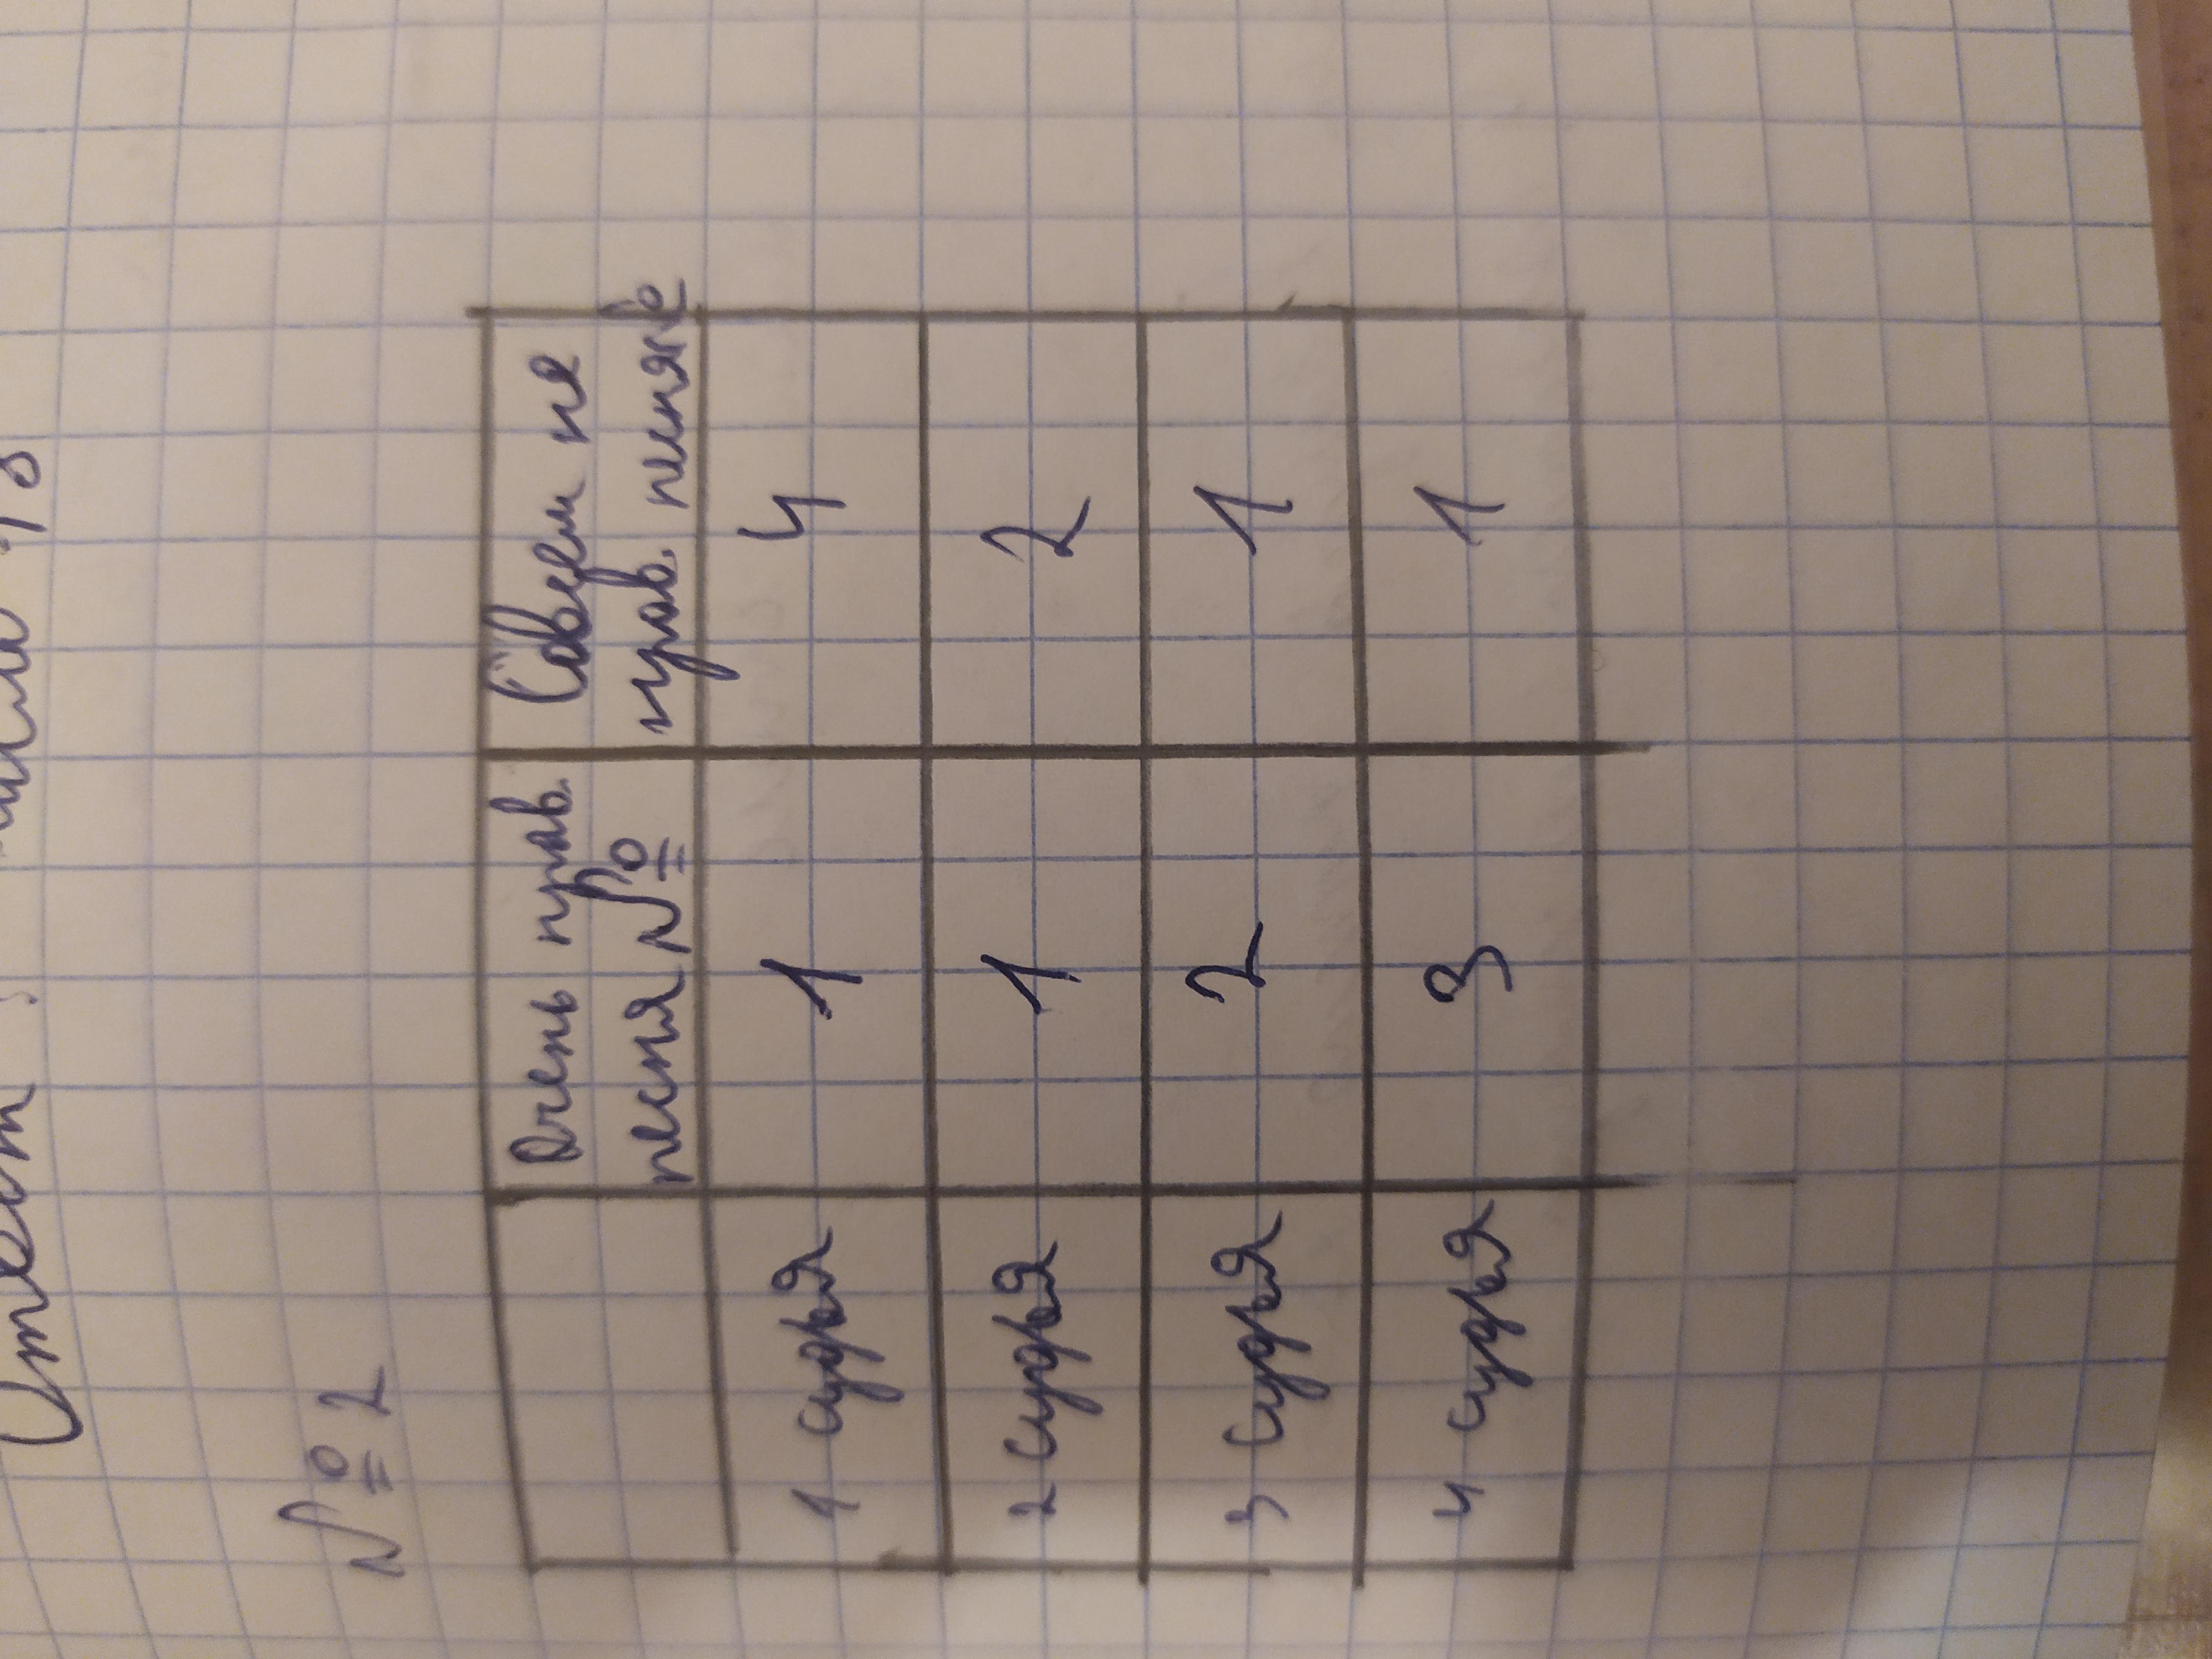 Ответ:
№ 2
Очень нрав. песня №
Совсем не нрав. песня №
1 судья 1 4
2 судья 1 2
3 судья 2 1
4 судья 3 1